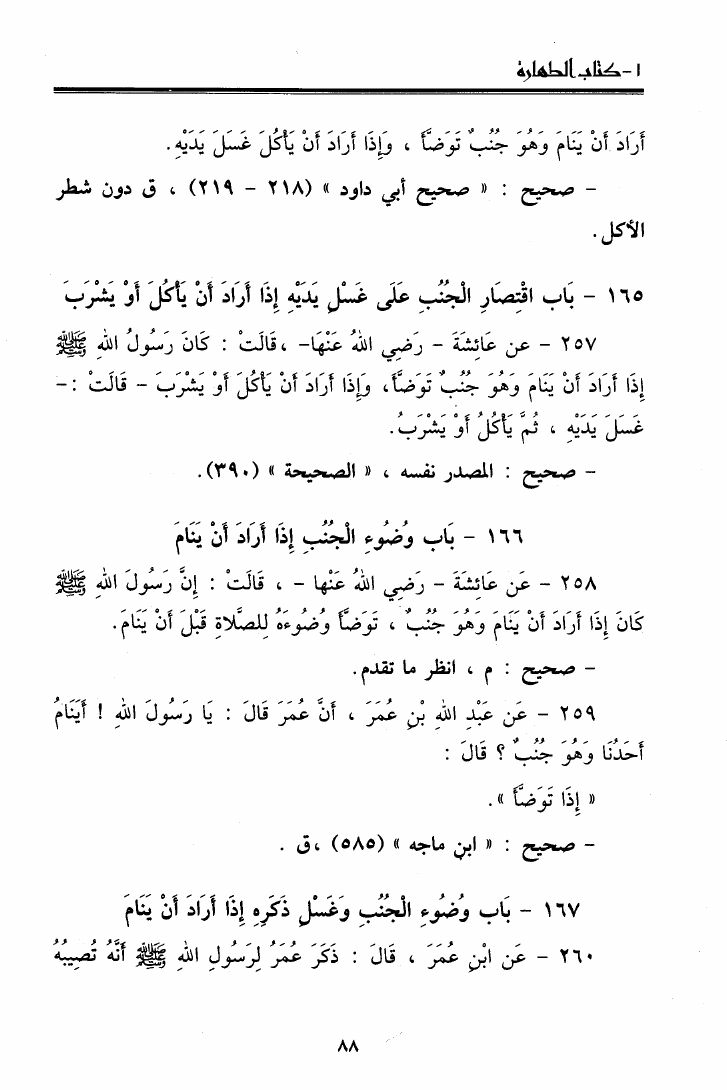 ١ - كتاب الطهارة
أَرَادَ أَنْ يَنَامَ وَهُوَ جُنُبٌ تَوَضَّأَ ، وَإِذَا أَرَادَ أَنْ يَأْكُلَ غَسَلَ يَدَيْهِ.
- صحيح : « صحيح أبي داود » (٢١٨ - ٢١٩) ، ق دون شطر
الأكل.
١٦٥ - بَاب اقْتِصَارِ الْجُنُبِ عَلَى غَسْلِ يَدَيْهِ إِذَا أَرَادَ أَنْ يَأْكُلَ أَوْ يَشْرَبَ
٢٥٧ - عن عَائِشَةَ - رَضِي اللهُ عَنْهَا- ، قَالَتْ : كَانَ رَسُولُ اللهِ ﷺ
إِذَا أَرَادَ أَنْ يَنَامَ وَهُوَ جُنُبٌ تَوَضَّأَ، وَإِذَا أَرَادَ أَنْ يَأْكُلَ أَوْ يَشْرَبَ - قَالَتْ :-
غَسَلَ يَدَيْهِ ، ثُمَّ يَأْكُلُ أَوْ يَشْرَبُ.
- صحيح : المصدر نفسه ، « الصحيحة » (٣٩٠).
١٦٦ - بَاب وُضُوءِ الْجُنُبِ إِذَا أَرَادَ أَنْ يَنَامَ
٢٥٨ - عَن عَائِشَةَ - رَضِي اللهُ عَنْها - ، قَالَتْ : إِنَّ رَسُولَ اللهِ ﷺ
كَانَ إِذَا أَرَادَ أَنْ يَنَامَ وَهُوَ جُنُبٌ ، تَوَضَّأَ وُضُوءَهُ لِلصَّلاةِ قَبْلَ أَنْ يَنَامَ.
- صحيح : م ، انظر ما تقدم.
٢٥٩ - عَن عَبْدِ اللهِ بْنِ عُمَرَ ، أَنَّ عُمَرَ قَالَ : يَا رَسُولَ اللهِ ! أَيَنَامُ
أَحَدُنَا وَهُوَ جُنُبٌ ؟ قَالَ :
« إِذَا تَوَضَّأَ ».
- صحيح : « ابن ماجه » (٥٨٥) ،ق .
١٦٧ - بَاب وُضُوءِ الْجُنُبِ وَغَسْلِ ذَكَرِهِ إِذَا أَرَادَ أَنْ يَنَامَ
٢٦٠ - عَن ابْنِ عُمَرَ ، قَالَ : ذَكَرَ عُمَرُ لِرَسُولِ اللهِ ﷺ أَنَّهُ تُصِيبُهُ
٨٨